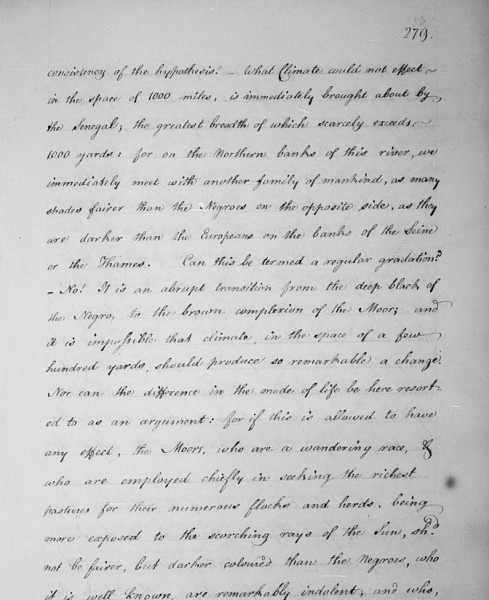 279.
consistency of the hypothesis! - What Climate could not effect
in the space of 1000 miles, is immediately brought about by
the Senegal; the greatest breadth of which scarcely exceeds
1000 yards: for on the Northern banks of this river, we
immediately meet with another family of mankind, as many
shades fairer than the Negroes on the opposite side, as they
are darker than the Europeans on the banks of the Seine
or the Thames. Can this be termed a regular gradation?
- No! It is an abrupt transition from the deep black of
the Negro, to the brown complexion of the Moor; and
it is impossible that climate, in the space of a few
hundred yards, should produce so remarkable a change.
Nor can the difference in the mode of life be here resort-
ed to as an argument: for if this is allowed to have
any effect, the Moors, who are a wandering race, &
who are employed chiefly in seeking the richest
pastures for their numerous flocks and herds, being
more exposed to the scorching rays of the Sun, shd.
not be fairer, but darker coloured than the Negroes, who
it is well known, are remarkably indolent, and who,